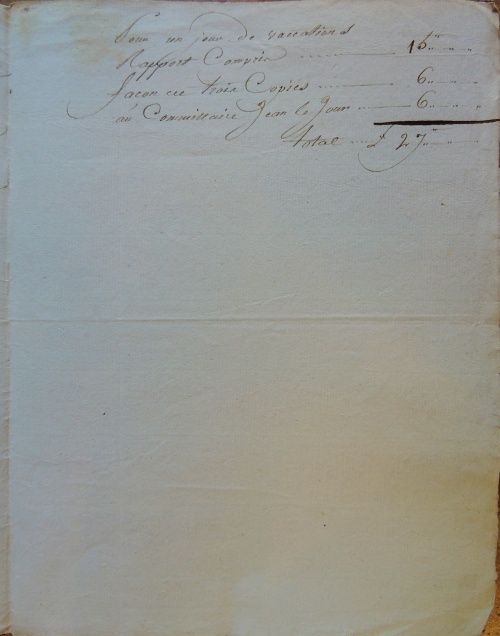 Pour un jour de vaccations
Rapport Compris ........ 15 " "
façon de trois Copies ........ 6 " "
au Commissaire Jean le Jour ........ 6 " "
total .... £ 27 " "